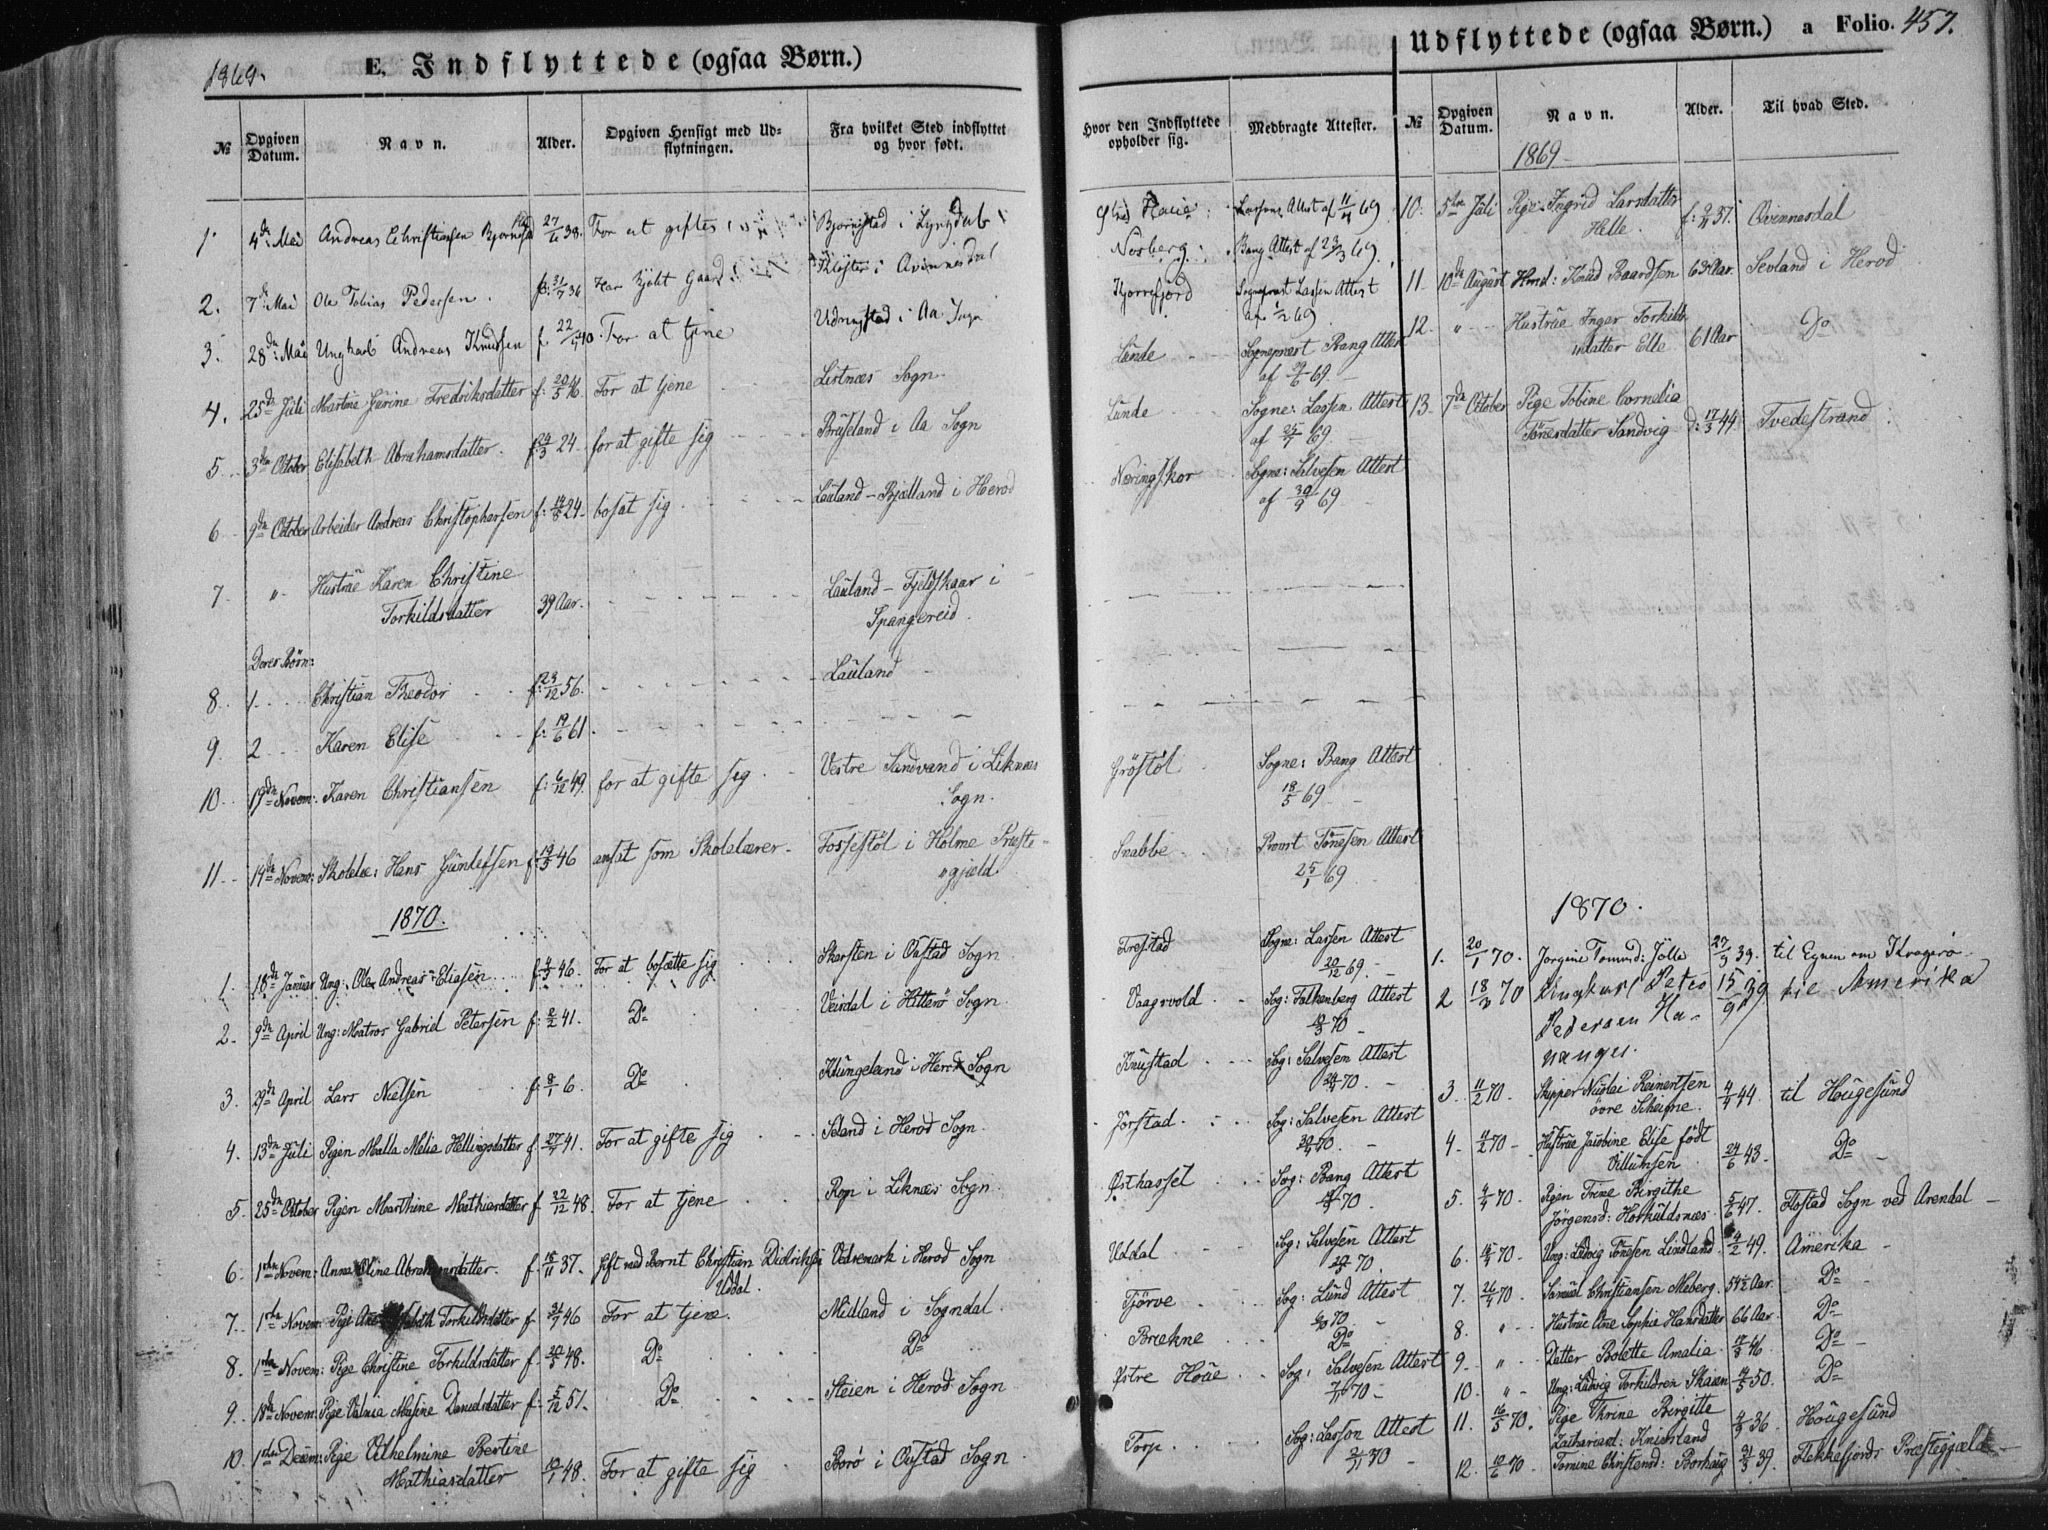 1869.
E. Indflyttede (ogsaa Børn.)
Udflyttede (ogsaa Børn.) a Folio. 457.
№ Opgiven Datum. Navn. Alder. Opgiven Hensigt med Udflytningen. Fra hvilket Sted indflyttet og hvor født. Hvor den Indflyttede opholder sig. Medbragte Attester.
1. 4de Mai Andreas Christiansen 27/6 38. For at giftes Bjørnestad i Lyngdal Lassens Attest af 69
2. 7de Mai Ole Tobias Pedersen f. 31/7 36 Har Kjøbt Gaard i Qvinnesdal Nesberg. Bang Attest af 23/3 69.
3. 28de Mai Ungkarl Andreas Knudsen f. 22/ 40 For at tjene i Aa Sogn Sogneprest Lassen Attest
4. 25de Juli Martine Serine Fredriksdatter f. 20/5 46 For at tjene Listnæs Sogn Lunde Sogneprest Bang Attest af 69.
5. 3die October Elisabeth Abrahamsdatter f. 24/3 24. for at gifte sig Bruseland i Aa Sogn Lunde Sogne: Lassen Attest af 69
6. 9de October Arbeider Andreas Christophersen f. 24. bosat sig Lauland - Bjælland i Herod Næringskor Sogne: Salvesen Attest af 30/9 69
7. " Hustrue Karen Christine Torkildsdatter 39 Aar. Lauland - Fjeldskaar i Spangereid.
Deres Børn:
8. 1. Christian Theodor f. 23/12 56. Lauland
9. 2 Karen Elise f. 19/6 61.
10. 19de Novem: Karen Christiansen f. 6/12 49. for at gifte sig Vestre Sandvand i Liknæs Sogn. Grøstøl Sogne: Bang Attest 18/5 69
11. 14de Novem: Skolelæ: Hans Gundersen f. 19/5 46 ansat som Skolelærer Fossestøl i Holme Præstegjæld Snabbe Provst Tønesen Attest 25/1 69
1870.
1. 18de Januar Ung: Ole Andreas Eliasen f. 46. For at bosætte sig Skarsten i Oustad Sogn Trestad Sogne: Lassen Attest 20/12 69.
2. 9de April Ung: Matros Gabriel Petersen f. 2/2 41. Do Veisdal i Hitterø Sogn Vaagsvold Sog: Falkenberg Attest 70
3. 29de April Lars Nielsen f. 8/1 6 Do Klungeland i Herod Sogn Knustad Sog: Salvesen Attest 70.
4. 13de Juli Pigen Malla Melia Hellingsdatter f. 27/ 41. For at gifte sig Seland i Herod Sogn Jørstad Sog: Salvesen Attest 70.
5. 25de October Pigen Marthine Mathiasdatter f. 22/12 48. For at tjene i Liknæs Sogn Østhassel Sog: Bang Attest 70.
6. 1ste Novem: Anna Oline Abrahamsdatter f. 18/11 37. Gift med Bernt Christian Didriksen Uddal. Vedremark i Herod Sogn Uddal Sog: Salvesen Attest 70.
7. 1ste Novem: Pige Torkildsdatter f. 46 For at tjene Midland i Sogndal Tjørve Sog: Lund Attest 70.
8. 1ste Novem: Pige Christine Torkildsdatter f. 20/5 48. Do Do Brækne Do
9. 18de Novem: Pige Masine Danielsdatter f. 5/12 51. Do Steien i Herod Sogn Østre Houe Sog: Salvesen Attest 70
10. 1ste Decem: Pige Vilhelmine Bertine Mathiasdatter 10/1 48. For at gifte sig Borø i Oustad Sogn Torp Sog: Lassen Attest 70
№ Opgiven Datum. Navn. Alder. Til hvad Sted.
1869
10. 5te Juli Pige Ingrid Larsdatter Helle. f. 37. Qvinnesdal
11. 10de August Hmd: Knud Baardsen 63 Aar. Sevland i Herod
12. " Hustrue Inger Torkildsdatter Elle 61 Aar Do
13. 7de October Pige Tobine Cornelia Tønesdatter Sandvig d: 17/3 44 Tvedestrand
1870.
1. 20/1 70. Jørgine Tomind: Jølle 27/9 39. til Egnen om Kragerø
2 18/3 70 Ungkarl Peter Pedersen Hananger. 15/9 39 til Amerika
3. 11/2 70. Skipper Nicolai Reinertsen øvre Scheigne. 4/4 44. til Hougesund
4. 11/2 70 Hustrue Jacobine Elise født Villumsen 24/6 43. Do
5. 4/4 70. Pigen Trine Birgithe Jørgensd: Horkuldsnæs. 5/6 47. Flostad Sogn ved Arendal
6. 18/4 70. Ung: Ludvig Tønesen Lindland. 4/2 49. Amerika
7. 26/4 70. Samuel Christiansen Meberg. 54½ Aar. Do
8. " Hustrue Ane Sophie Hansdatter 66 Aar. Do
9. " Datter Bolette Amalia. 46. Do
10. " Ung: Ludvig Torkildsen Skaien 50. Do
11. 16/5 70. Pige Thrine Birgitte Zachariasd: Knivsland 36. Hougesund
12. 10/6 70 Tomine Christensd: Borhaug 31/3 39. Flekkefjords Præstegjæld